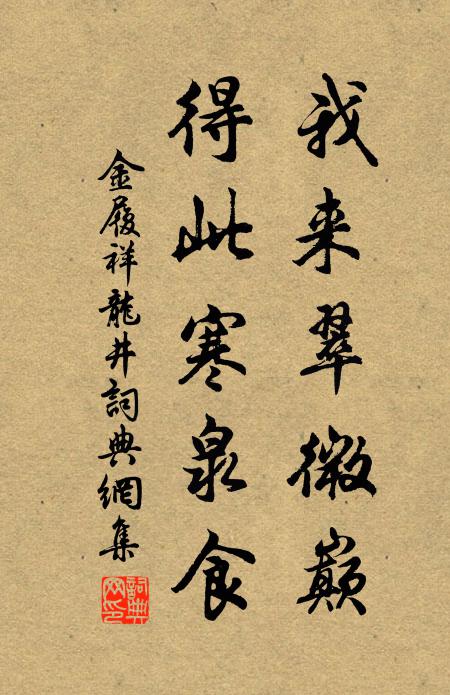 我来翠微巅
得此寒泉食
金履祥龍井詞典網集
詞典網印